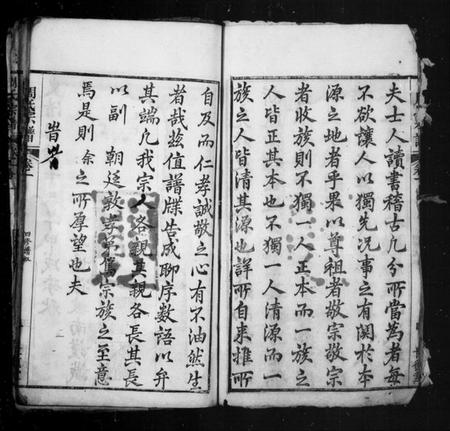 夫士人讀書稽古凡分所當為者每
不欲讓人以獨先況事之有關於本
源之地者乎果以尊祖者敬宗敬宗
者收族則不獨一人正本而一族之
人皆正其本也不獨一人清源而一
族之人皆清其源也詳所自來推所
自及而仁孝誠敬之心有不油然生
者哉茲值譜牒告成聊序數語以弁
其端凡我宗人各親其親各長其長
以副 朝廷敦孝 宗族之至意
焉是則余之所厚望也夫